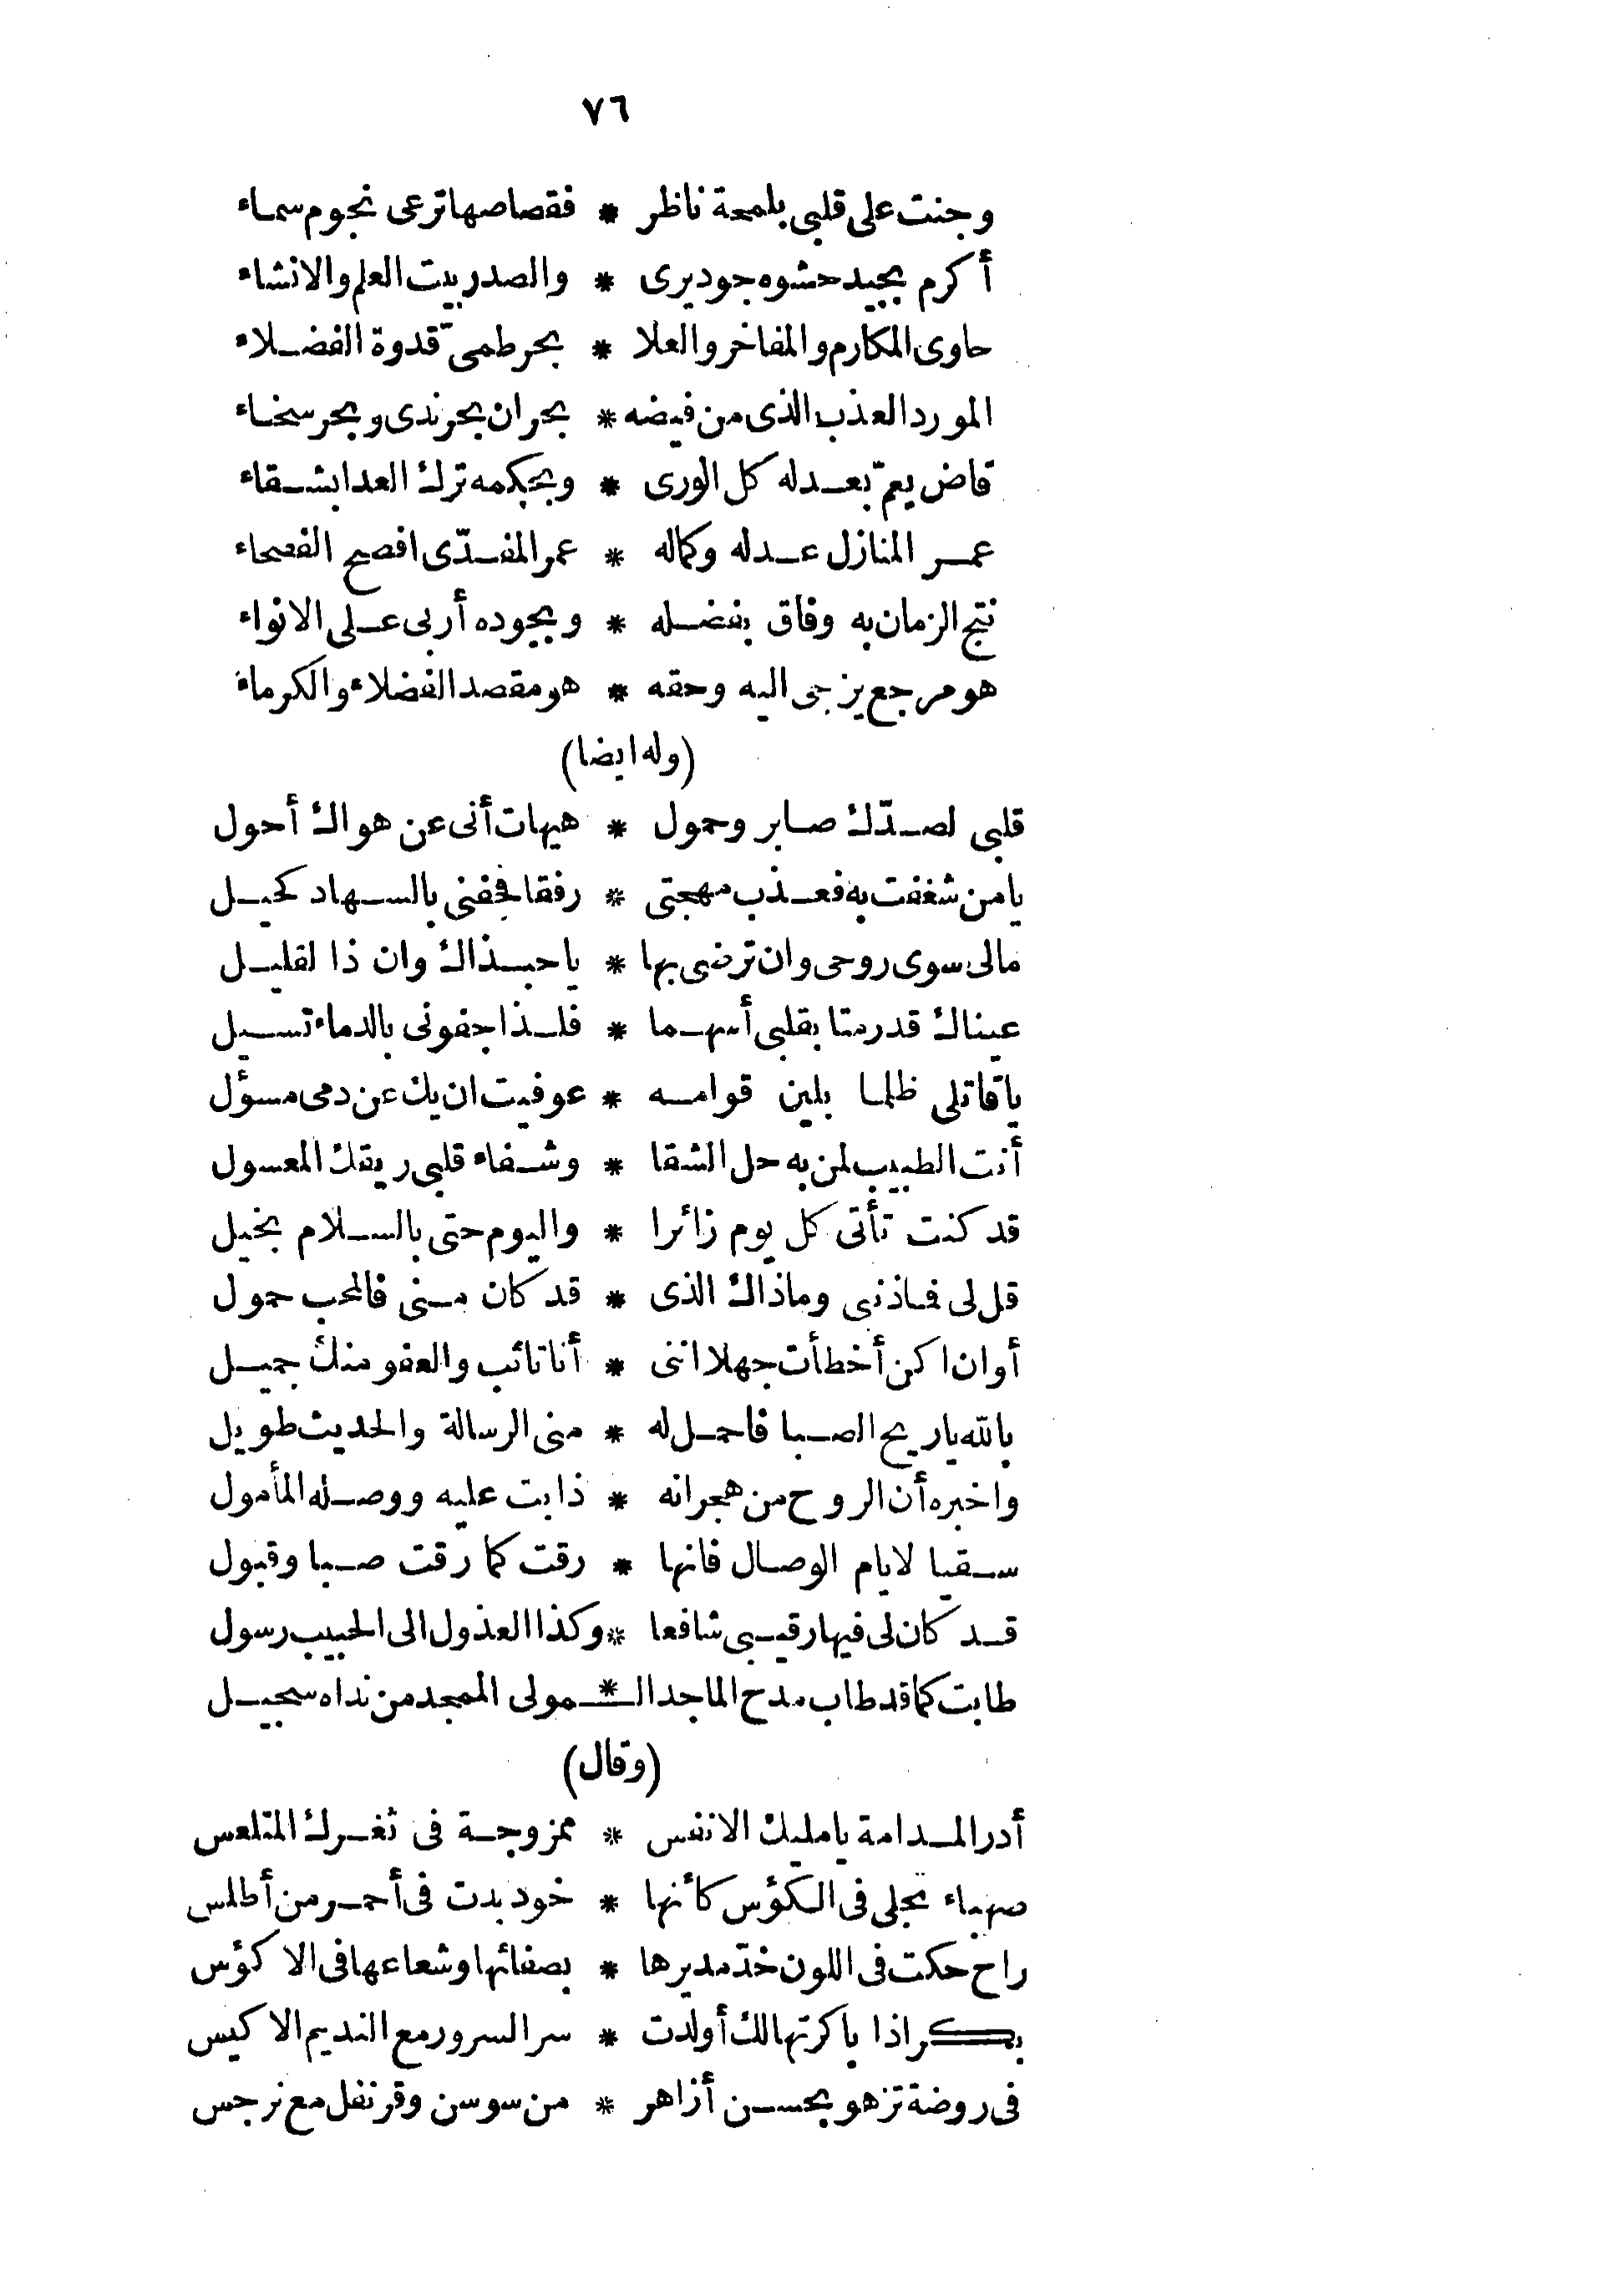 ٧٦
وجنت على قلبي بلمعة ناظر * فقصاصها ترعى نجوم سماء
أكرم بجيد حشوه جود يرى * والصدر بيت العلم والانشاء
حاوى المكارم والمفاخر والعلا * بحر طمى قدوة الفضلاء
المورد العذب الذى من فيضه * بحران بحر ندى وبحر سخاء
قاض يعمّ بعدله كل الورى * وبحكمه ترك العدا بشقاء
عمر المنازل عدله وكماله * عمر المفدّى افصح الفصحاء
نتج الزمان به وفاق بفضله * وبجوده أربى على الانواء
هو مرجع يزجى اليه وحقه * هو مقصد الفضلاء والكرماء
(وله ايضا)
قلبي لصدّك صابر وحمول * هيهات أنى عن هواك أحول
يا من شغفت به فعذب مهجتى * رفقا فجفنى بالسهاد كحيل
مالى سوى روحى وان ترضى بها * يا حبذاك وان ذا لقليل
عيناك قد رمتا بقلبى أسهما * فلذا جفونى بالدماء تسيل
يا قاتلى ظلما بلين قوامه * عوفيت ان يك عن دمى مسؤل
أنت الطبيب لمن به حل الشقا * وشفاء قلبى ريقك المعسول
قد كنت تأتى كل يوم زائرا * واليوم حتى بالسلام بخيل
قل لى فما ذنبى وما ذاك الذى * قد كان منى فالمحب حمول
أو ان اكن أخطأت جهلا اننى * أنا تائب والعفو منك جميل
بالله يا ريح الصبا فاحمل له * منى الرسالة والحديث طويل
واخبره أن الروح من هجرانه * ذابت عليه ووصله المأمول
سقيا لايام الوصال فانها * رقت كما رقت صبا وقبول
قد كان لى فيها رقيبى شافعا * وكذا العذول الى الحبيب رسول
طابت كما قد طاب مدح الماجد الـ * ـمولى الممجد من نداه سجيل
(وقال)
أدر المدامة يا مليك الانفس * ممزوجة فى ثغرك المتلعس
صهباء تجلى فى الكؤس كأنها * خود بدت فى أحمر من أطلس
راح حكت فى اللون خدّ مديرها * بصفائها وشعاعها فى الاكؤس
بكر اذا باكرتها لك أولدت * سر السرور مع النديم الاكيس
فى روضة تزهو بحسن أزاهر * من سوسن وقرنفل مع نرجس